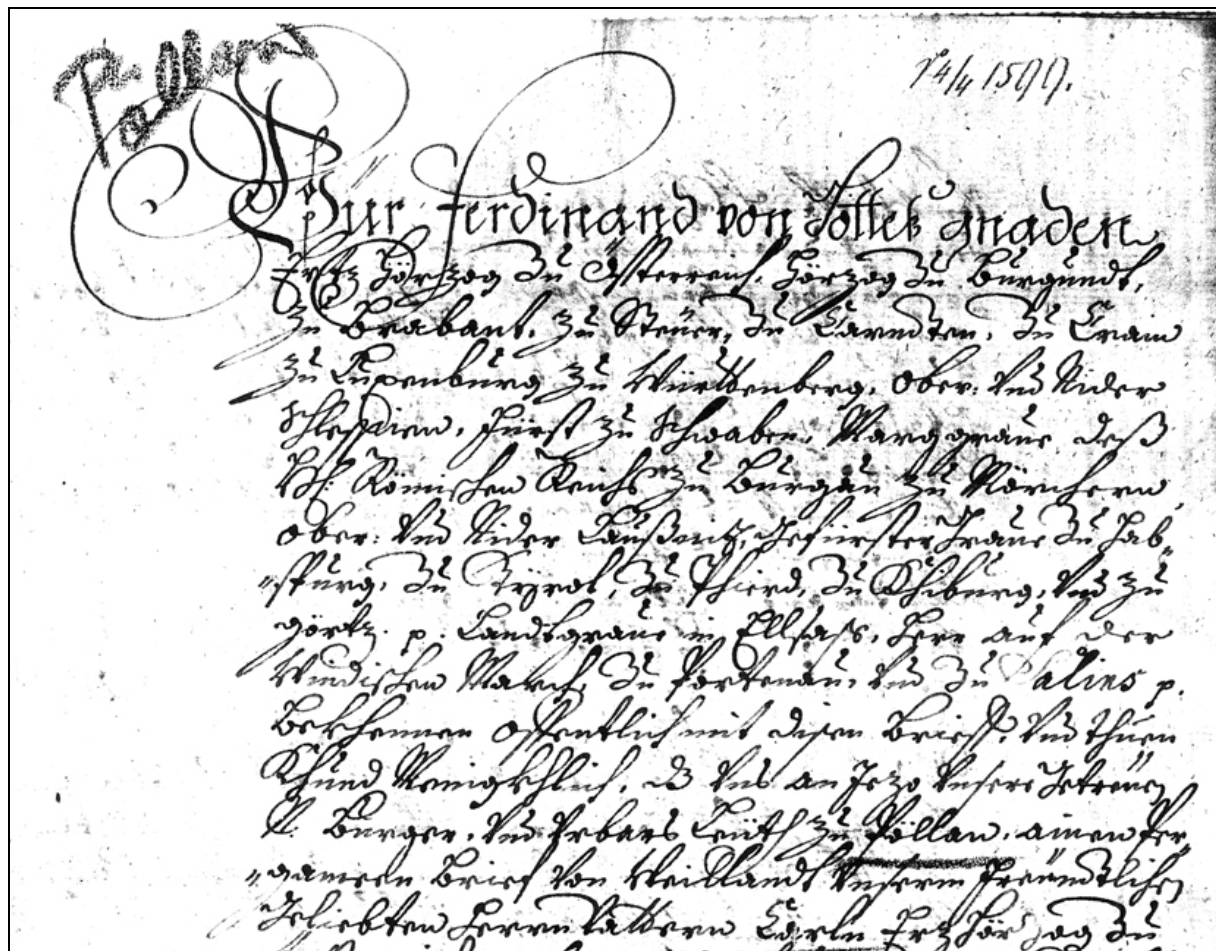 Pöllau
14/4 1599.
Wür Ferdinand von Gottes gnaden
Ertz Hörzog Zu Össterreich, Hörzog Zu Burgundt,
Zu Brabant, Zu Steüer, Zu Cärndten, Zu Crain
Zu Luzenburg Zu Württenberg, Ober: Vnd Nider
Schlessien, Fürst Zu Schwaben, Marggraue deß
Hl: Römischen Reichs Zu Burgau Zu Mörchern
Ober: Vnd Nider Laußnitz, Gefürster Graue Zu Hab=
=spurg, Zu Tyrol, Zu Phierd, Zu Khiburg, Vnd Zu
Görtz. p: Landtgraue in Ellsass, Herr auf der
Windischen March, Zu Portenau, Vnd Zu Salins p.
Bekhennen offentlich mit disen Brieff, Vnd thuen
Khund Menigkhlich, dz Vns an Jezo Vnsere Getreuen
N: Burger, Vnd Erbars Leüth Zu Pöllau, ainen Per=
=gameen Brief Von Weillandt Vnserm Freündtlichen
Geliebten Herrn Vattern Carln Ertz Hörzog Zu